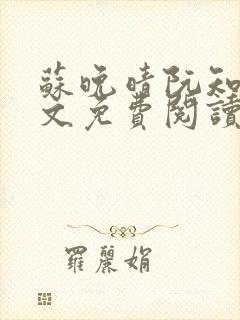 蘇晚晴阮知
文免費閱讀
羅麗娟